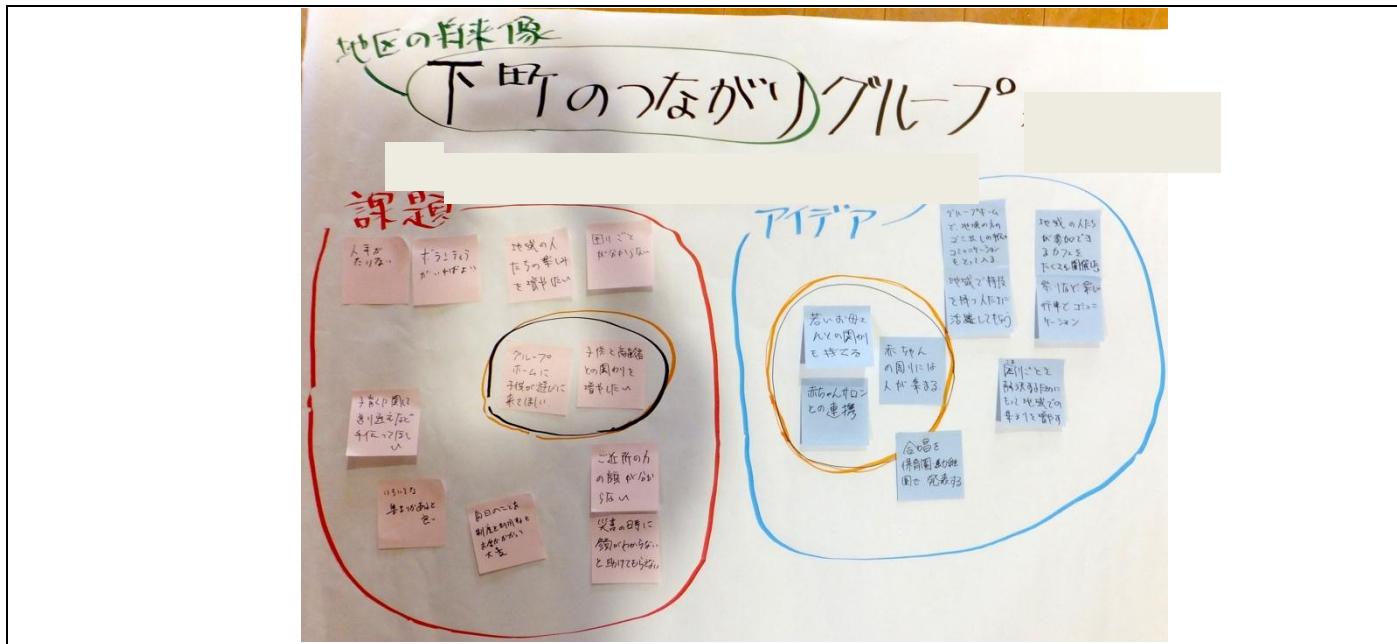 地区の将来像
下町のつながりグループ
課題
人手が
たりない
ボランティア
がいればよい
地域の人
たちの楽しみ
を増やしたい
困りごと
がわからない
グループ
ホームに
子供が遊びに
来てほしい
子供と高齢者
との関わりを
増やしたい
子育てに関して
送り迎えなど
手伝ってほし
い
いろいろな
集まりがあると
良い
毎日のことは
制度を利用すると
お金がかかり
大変
ご近所の方
の顔が分か
らない
災害の時に
顔がわからない
と助けてもらえない
アイデア
グループホーム
で、地域の方の
ゴミ出しの
コミュニケーション
をとっている
地域で特技
を持つ人たちに
活躍してもらう
地域の人たち
が参加でき
るカフェを
たくさん開催
祭りなど楽しい
行事でコミュニ
ケーション
若いお母さ
んとの関わり
を持てる
赤ちゃん
の周りには
人が集まる
赤ちゃんサロン
との連携
困りごとを
解決するために
もって地域での
集まりを増やす
合唱を
保育園・幼稚
園で発表する